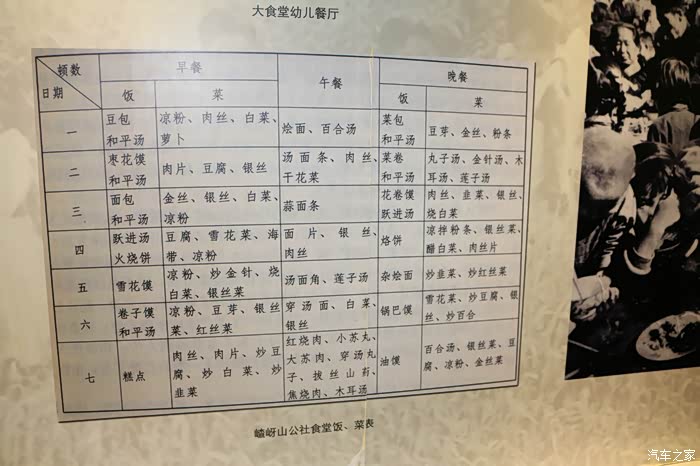 大食堂幼儿餐厅
顿数 早餐 午餐 晚餐
日期 饭 菜 饭 菜
一 豆包 凉粉、肉丝、白菜、 烩面、百合汤 菜包 豆芽、金丝、粉条
和平汤 萝卜 和平汤
二 枣花馍 肉片、豆腐、银丝 汤面条、肉丝、 菜卷 丸子汤、金针汤、木
和平汤 干花菜 和平汤 耳汤、莲子汤
三 面包 金丝、银丝、白菜、 蒜面条 花卷馍 肉丝、韭菜、银丝、
和平汤 凉粉 跃进汤 烧白菜
四 跃进汤 豆腐、雪花菜、海 面片、银丝、 烙饼 凉拌粉条、银丝菜、
火烧饼 带、凉粉 肉丝 醋白菜、肉丝片
五 雪花馍 凉粉、炒金针、烧 汤面角、莲子汤 杂烩面 炒韭菜、炒红丝菜
白菜、银丝菜
六 卷子馍 凉粉、豆芽、银丝 穿汤面、白菜、 锅巴馍 雪花菜、炒豆腐、银
和平汤 菜、红丝菜 银丝 丝、炒百合
七 糕点 肉丝、肉片、炒豆 红烧肉、小苏丸、 油馍 百合汤、银丝菜、豆
腐、炒白菜、炒 大苏肉、穿汤丸 腐、凉粉、金丝菜
韭菜 子、拔丝山药、
焦烧肉、木耳汤
嵖岈山公社食堂饭、菜表
汽车之家